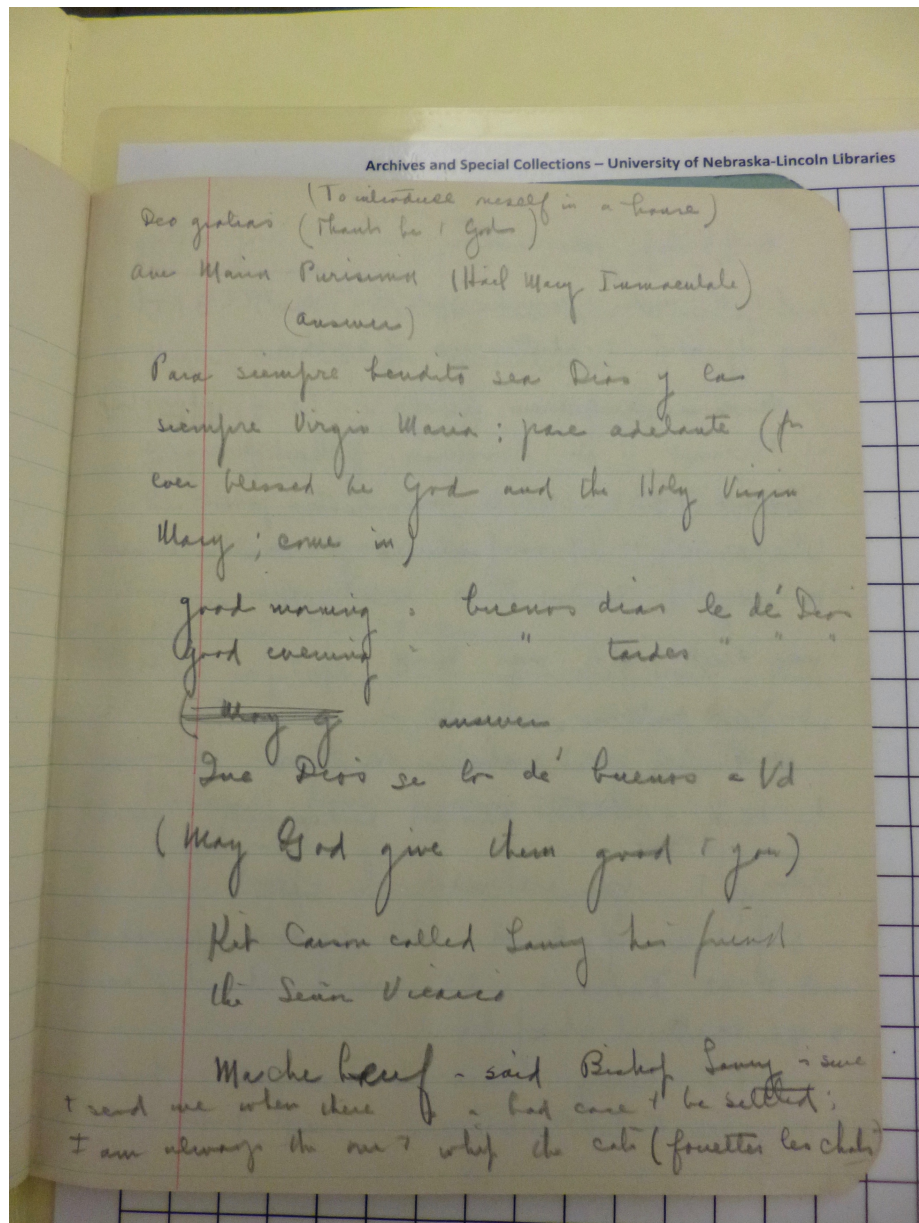 Archives and Special Collections – University of Nebraska-Lincoln Libraries
(To introduce myself in a house)
Deo gratias (Thanks be t God)
Ave Maria Purisima (Hail Mary Immaculate)
(answer)
Para siempre bendito sea Dios y la
siempre Virgin Maria : pase adelante (for
ever blessed be God and the Holy Virgin
Mary ; come in)
good morning : buenos dias le dé Dios
good evening : " tardes " " "
(May g answer
Que Dios se los dé buenos a Vd
(May God give them good t you)
Kit Carson called Lamy his friend
the Señor Vicario
Machebeuf - said Bishop Lamy is sure
t send me when there is a bad case t be settled;
I am always the one t whip the cats (fouetter les chats)